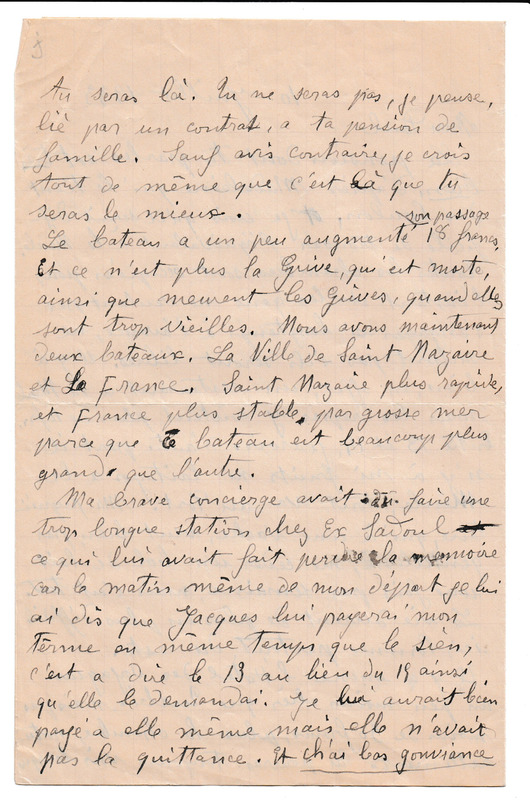 tu seras là. Tu ne seras pas, je pense,
lié par un contrat, a ta pension de
famille. Sauf avis contraire, je crois
tout de même que c'est là que tu
seras le mieux.
son passage
Le bateau a un peu augmenté 18 francs,
Et ce n'est plus la Grive, qui est morte,
ainsi que meurent les Grives, quand elles
sont trop vieilles. Nous avons maintenant
deux bateaux. La Ville de Saint Nazaire
et La France. Saint Nazaire plus rapide,
et France plus stable, par grosse mer
parce que le bateau est beaucoup plus
grand que l'autre.
Ma brave concierge avait dû faire une
trop longue station chez Ex Sadoul
ce qui lui avait fait perdre la memoire
car le matin même de mon départ je lui
ai dis que Jacques lui payerai mon
terme en même temps que le sien,
c'est a dire le 13 au lieu du 19 ainsi
qu'elle le demandai. Je lui aurais bien
payé a elle même mais elle n'avait
pas la quittance. Et ch'ai bas gonviance